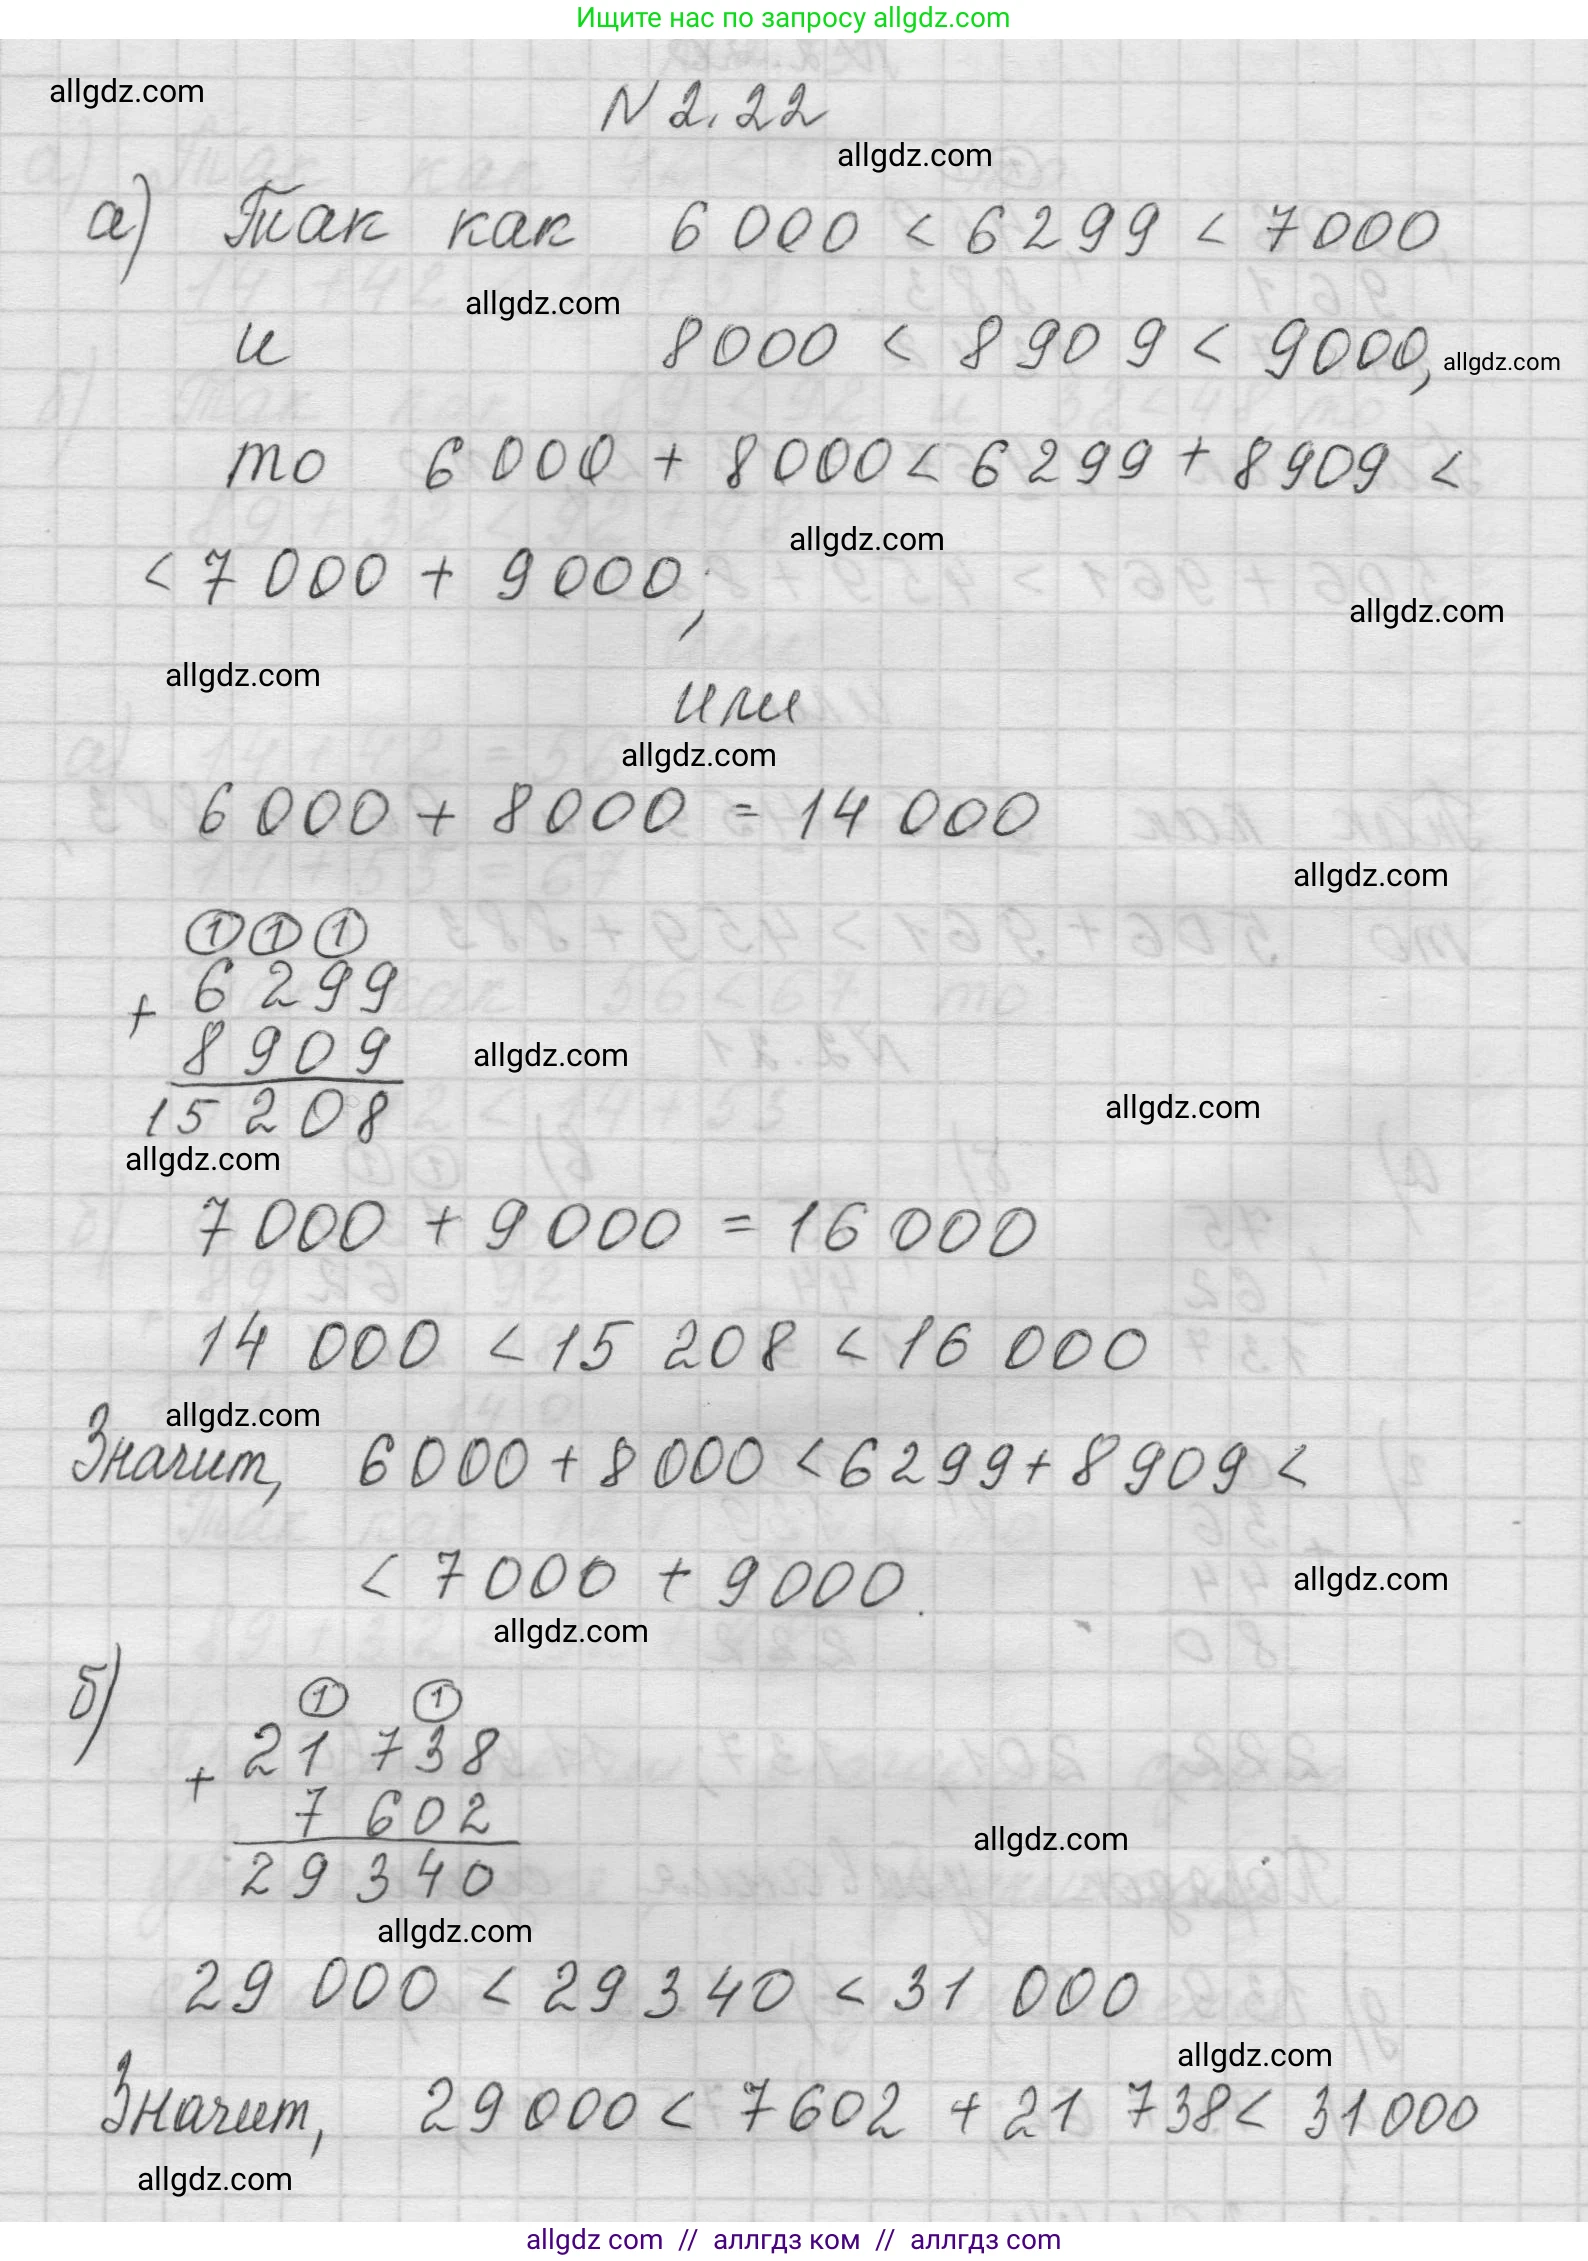 Ищите нас по запросу allgdz.com
allgdz.com
N 2.22
allgdz.com
а) Так как 6 000 < 6 299 < 7 000
allgdz.com
и 8000 < 8 909 < 9000,
allgdz.com
то 6 000 + 8 000 < 6 299 + 8 909 <
allgdz.com
< 7 000 + 9 000,
allgdz.com
allgdz.com
или
allgdz.com
6 000 + 8 000 = 14 000
allgdz.com
1 1 1
6 299
+
8 909
allgdz.com
15 208
allgdz.com
allgdz.com
7 000 + 9 000 = 16 000
14 000 < 15 208 < 16 000
allgdz.com
Значит, 6 000 + 8 000 < 6 299 + 8 909 <
< 7 000 + 9 000.
allgdz.com
allgdz.com
б)
1 1
21 738
+
7 602
allgdz.com
29 340
allgdz.com
29 000 < 29 340 < 31 000
allgdz.com
Значит, 29 000 < 7 602 + 21 738 < 31 000
allgdz.com
allgdz.com // аллгдз ком // аллгдз.com